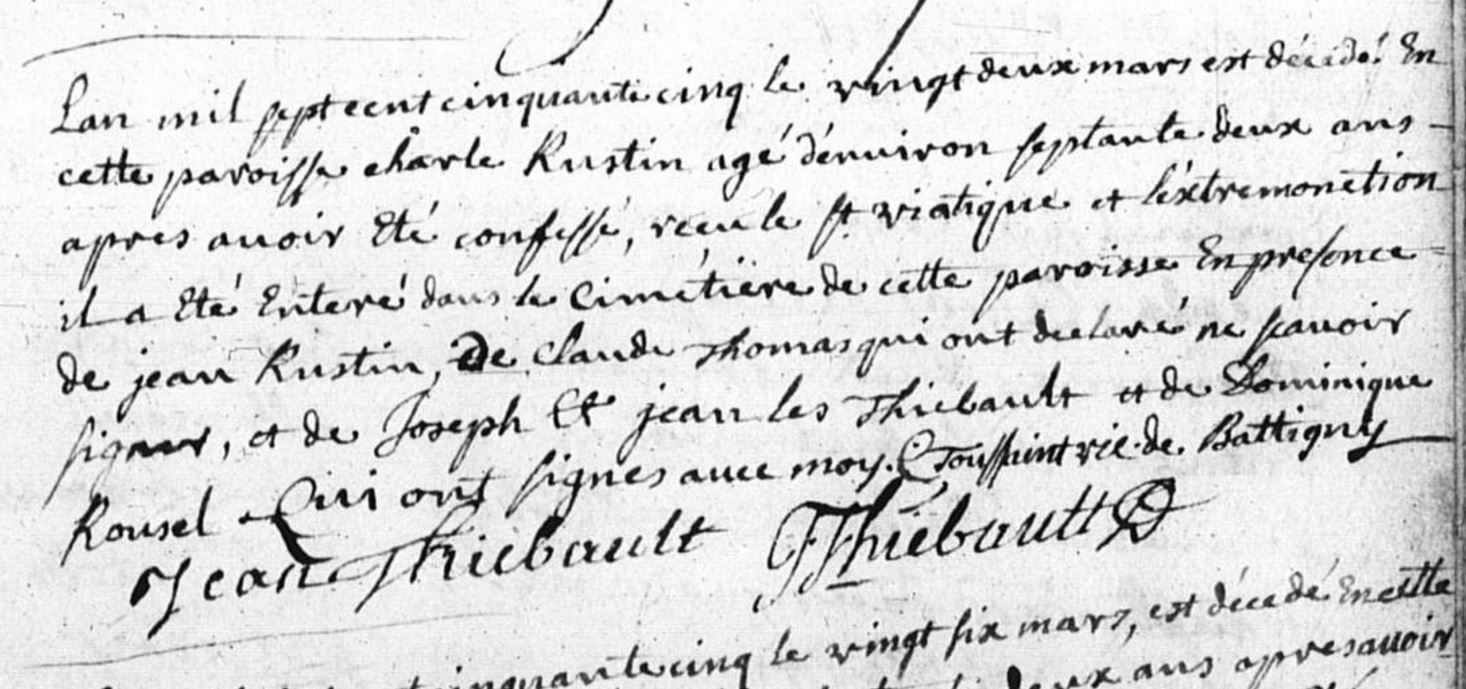 Lan mil sept cent cinquante cinq le vingt deux mars est décédé En
cette paroisse charle Rustin agé d'énuiron septante deux ans
apres auoir Eté confessé, recu le st viatique et l'éxtremonction
il a Eté Enteré dans le Cimétiére de cette paroisse En presence
de jean Rustin, De Claude Thomas qui ont declaré ne scauoir
signer, et de Joseph Et jean les Thiebault et de Dominique
Rousel Qui ont signes auec moy. C Toussaint vic. de Battigny
Jean Thiebault J Thiebault D
cinquante cinq le vingt six mars, est décedé En cette
deux ans apres auoir